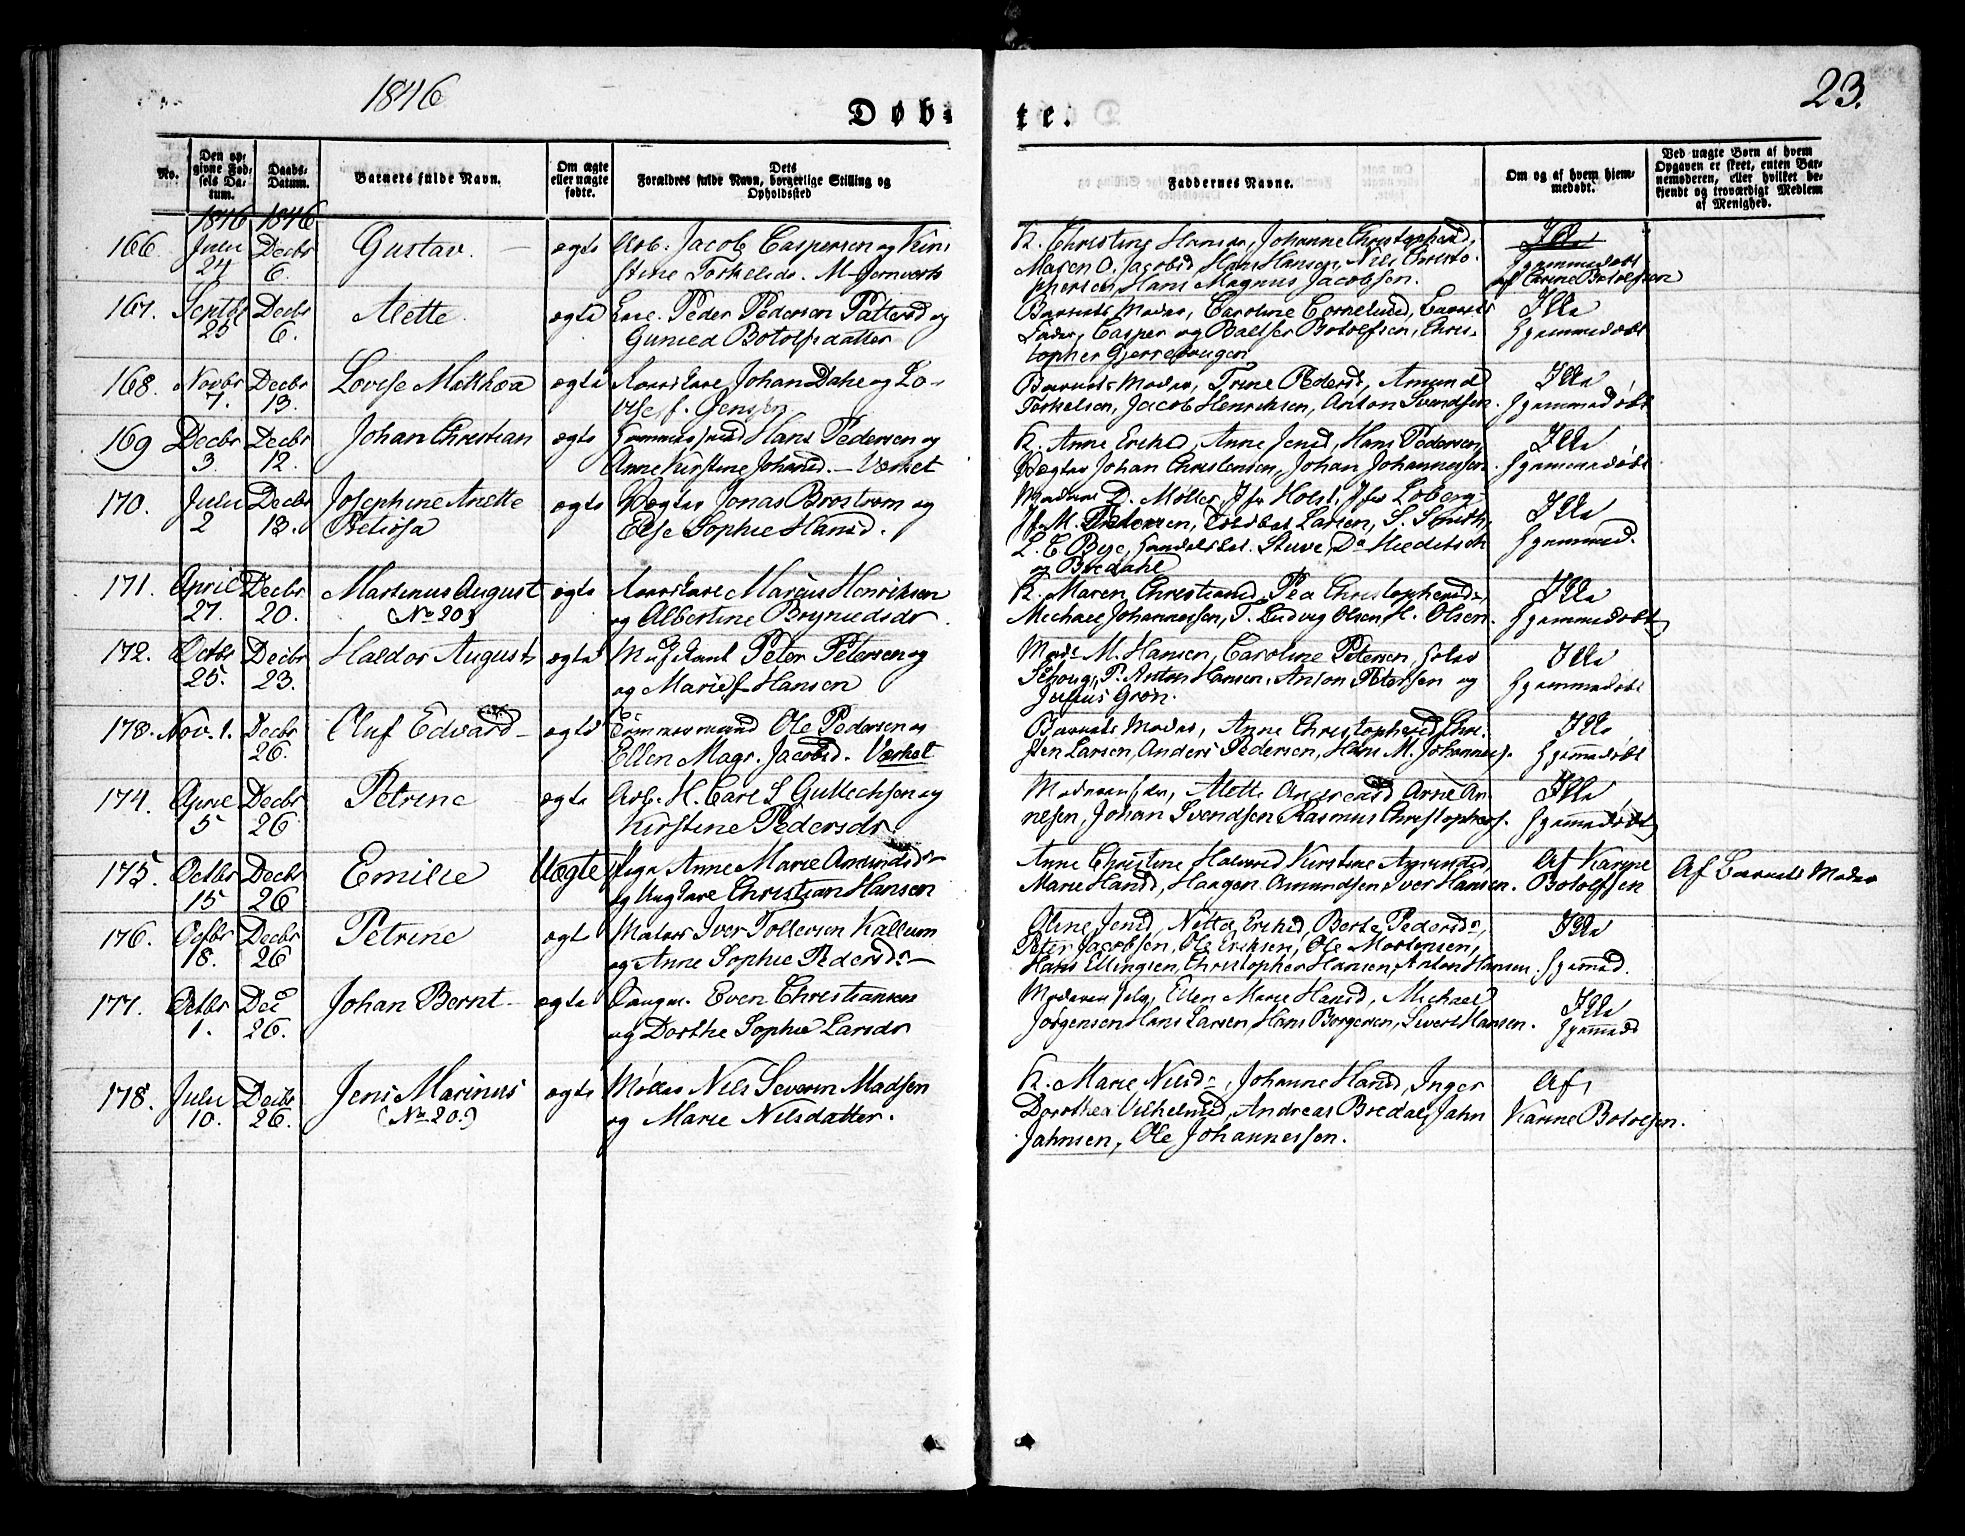 1846
23.
Døb-
te.
No.
Den op-
givne Fød-
sels Da-
tum.
Daabs-
Datum.
Barnets fulde Navn.
Om ægte
eller uægte
fødte.
Dets
Forældres fulde Navn, borgerlige Stilling og
Opholdssted
Faddernes Navne.
Om og af hvem hjem-
medøbt.
Ved uægte Børn af hvem
Opgaven er skeet, enten Bar-
nemoderen, eller hvilket be-
kjendt og troværdigt Medlem
af Menighed.
1846 1846
166. Juli 24 Decbr 6. Gustav. ægte Arb. Jacob Caspersen og Kir-
stine Torkelsd.
K. Christine Hansen, Johanne Christophersd,
Maren O. Jacobsd Hans Hansen, Nils Christo-
phersen, Hans Magnus Jacobsen.
hjemmedøbt
af Carine Botolfsen
167. Septbr 25 Decbr 6. Alette. ægte Peder Pedersen og
Gunild Botolfsdatter
Barnets Moder, Caroline Corneliusd, Barnets
Fader, Casper og Baltser Botolfsen, Chris-
topher
Ille
hjemmedøbt
168. Novbr 7. Decbr 13. Lovise Mathea ægte Johan Dahl og Lo-
vise f. Jensen
Barnets Moder, Trine Pedersd, Amund
Torkelsen, Jacob Henriksen, Anton Svendsen.
Ille
hjemmedøbt
169 Decbr 3. Decbr 12. Johan Christian ægte Tømmermand Hans Pedersen og
Anne Kirstine Johansd. - Værket
K. Anne Eriksd, Anne Jensd, Hans Pedersen,
Vægter Johan Christensen, Johan Johannessen.
Ille
hjemmedøbt
170. Juli 2 Decbr 13. Josephine Anette
Petrissa
ægte Vægter Jonas Brostrøm og
Else Sophie Hansd.
D. Møller, Jfr Holst, Jfr Loberg
Jfr M. Petersen, Larsen, S. Smith,
L. C. Bye, Handelsbet. Stuve, Do
og Bredahl
Ille
hjemmed.
171. April 27. Decbr 20. Martinus August
(No 20)
ægte Marius Henriksen
og Albertine Brynildsdr.
K. Maren Christiansd, Pea Christophersd,
Michael Johannessen, T. Ludvig Olsen H. Olsen.
Ille
hjemmedøbt
172. Octbr 25. Decbr 23. Haldor August ægte Musikant Peter Petersen og
og Marie f. Hansen
Mad. M. Hansen, Caroline Petersen,
P. Anton Hansen, Anton Petersen og
Julius Grøn.
Ille
hjemmedøbt
173. Nov. 1. Decbr 26. Oluf Edvard ægte Tømmermand Ole Pedersen og
Ellen Magr. Jacobsd. Værket
Barnets Moder, Anne Christophersd, Chri-
sten Larsen, Anders Pedersen, Hans M. Johannes.
Ille
hjemmedøbt
174. April 5 Decbr 26. Petrine ægte Arb. H. Carl L Gullechsen og
Kirstine Pedersdr.
Alette Andreasd Arne An-
nesen, Johan Svendsen Rasmus Christophers.
Ille
hjemmedøbt
175. Octbr 15 Decbr 26 Emilie Uægte Pige Anne Marie Amundsdr
og Ungkarl Christian Hansen
Anne Christine Halvorsd Kirstine Amundsd,
Marie Hansd, Haagen Amundsen Iver Hansen.
Af Karine
Botolfsen
Af Barnets Moder
176. Octbr 18. Decbr 26 Petrine ægt Matros Iver Tollevsen Kallum
og Anne Sophie Pedersdr
Oline Jensd, Netta Eriksd, Berte Pedersdr,
Peter Jacobsen, Ole Eriksen, Ole Mortensen,
Hans Ellingsen, Christopher Hansen, Anton Hansen.
Ille
hjemmd.
177. Octbr 1. Dec 26. Johan Bernt ægte Even Christiansen
og Dorthe Sophie Larsdr
Moderen selv, Ellen Marie Hansd, Michael
Jørgensen Hans Larsen, Hans Borgersen, Sivert Hansen.
Ille
hjemmd
178. Juli 10. Decbr 26. Jens Marinus
(No 20.)
ægte Møller Nils Severin Madsen
og Marie Nilsdatter.
K. Marie Nilsd, Johanne Hansd, Inger
Dorothea Vilhelmsd, Andreas Bredal, Jahn
Jahnsen, Ole Johannessen.
Af,
Karine Botolfsen.